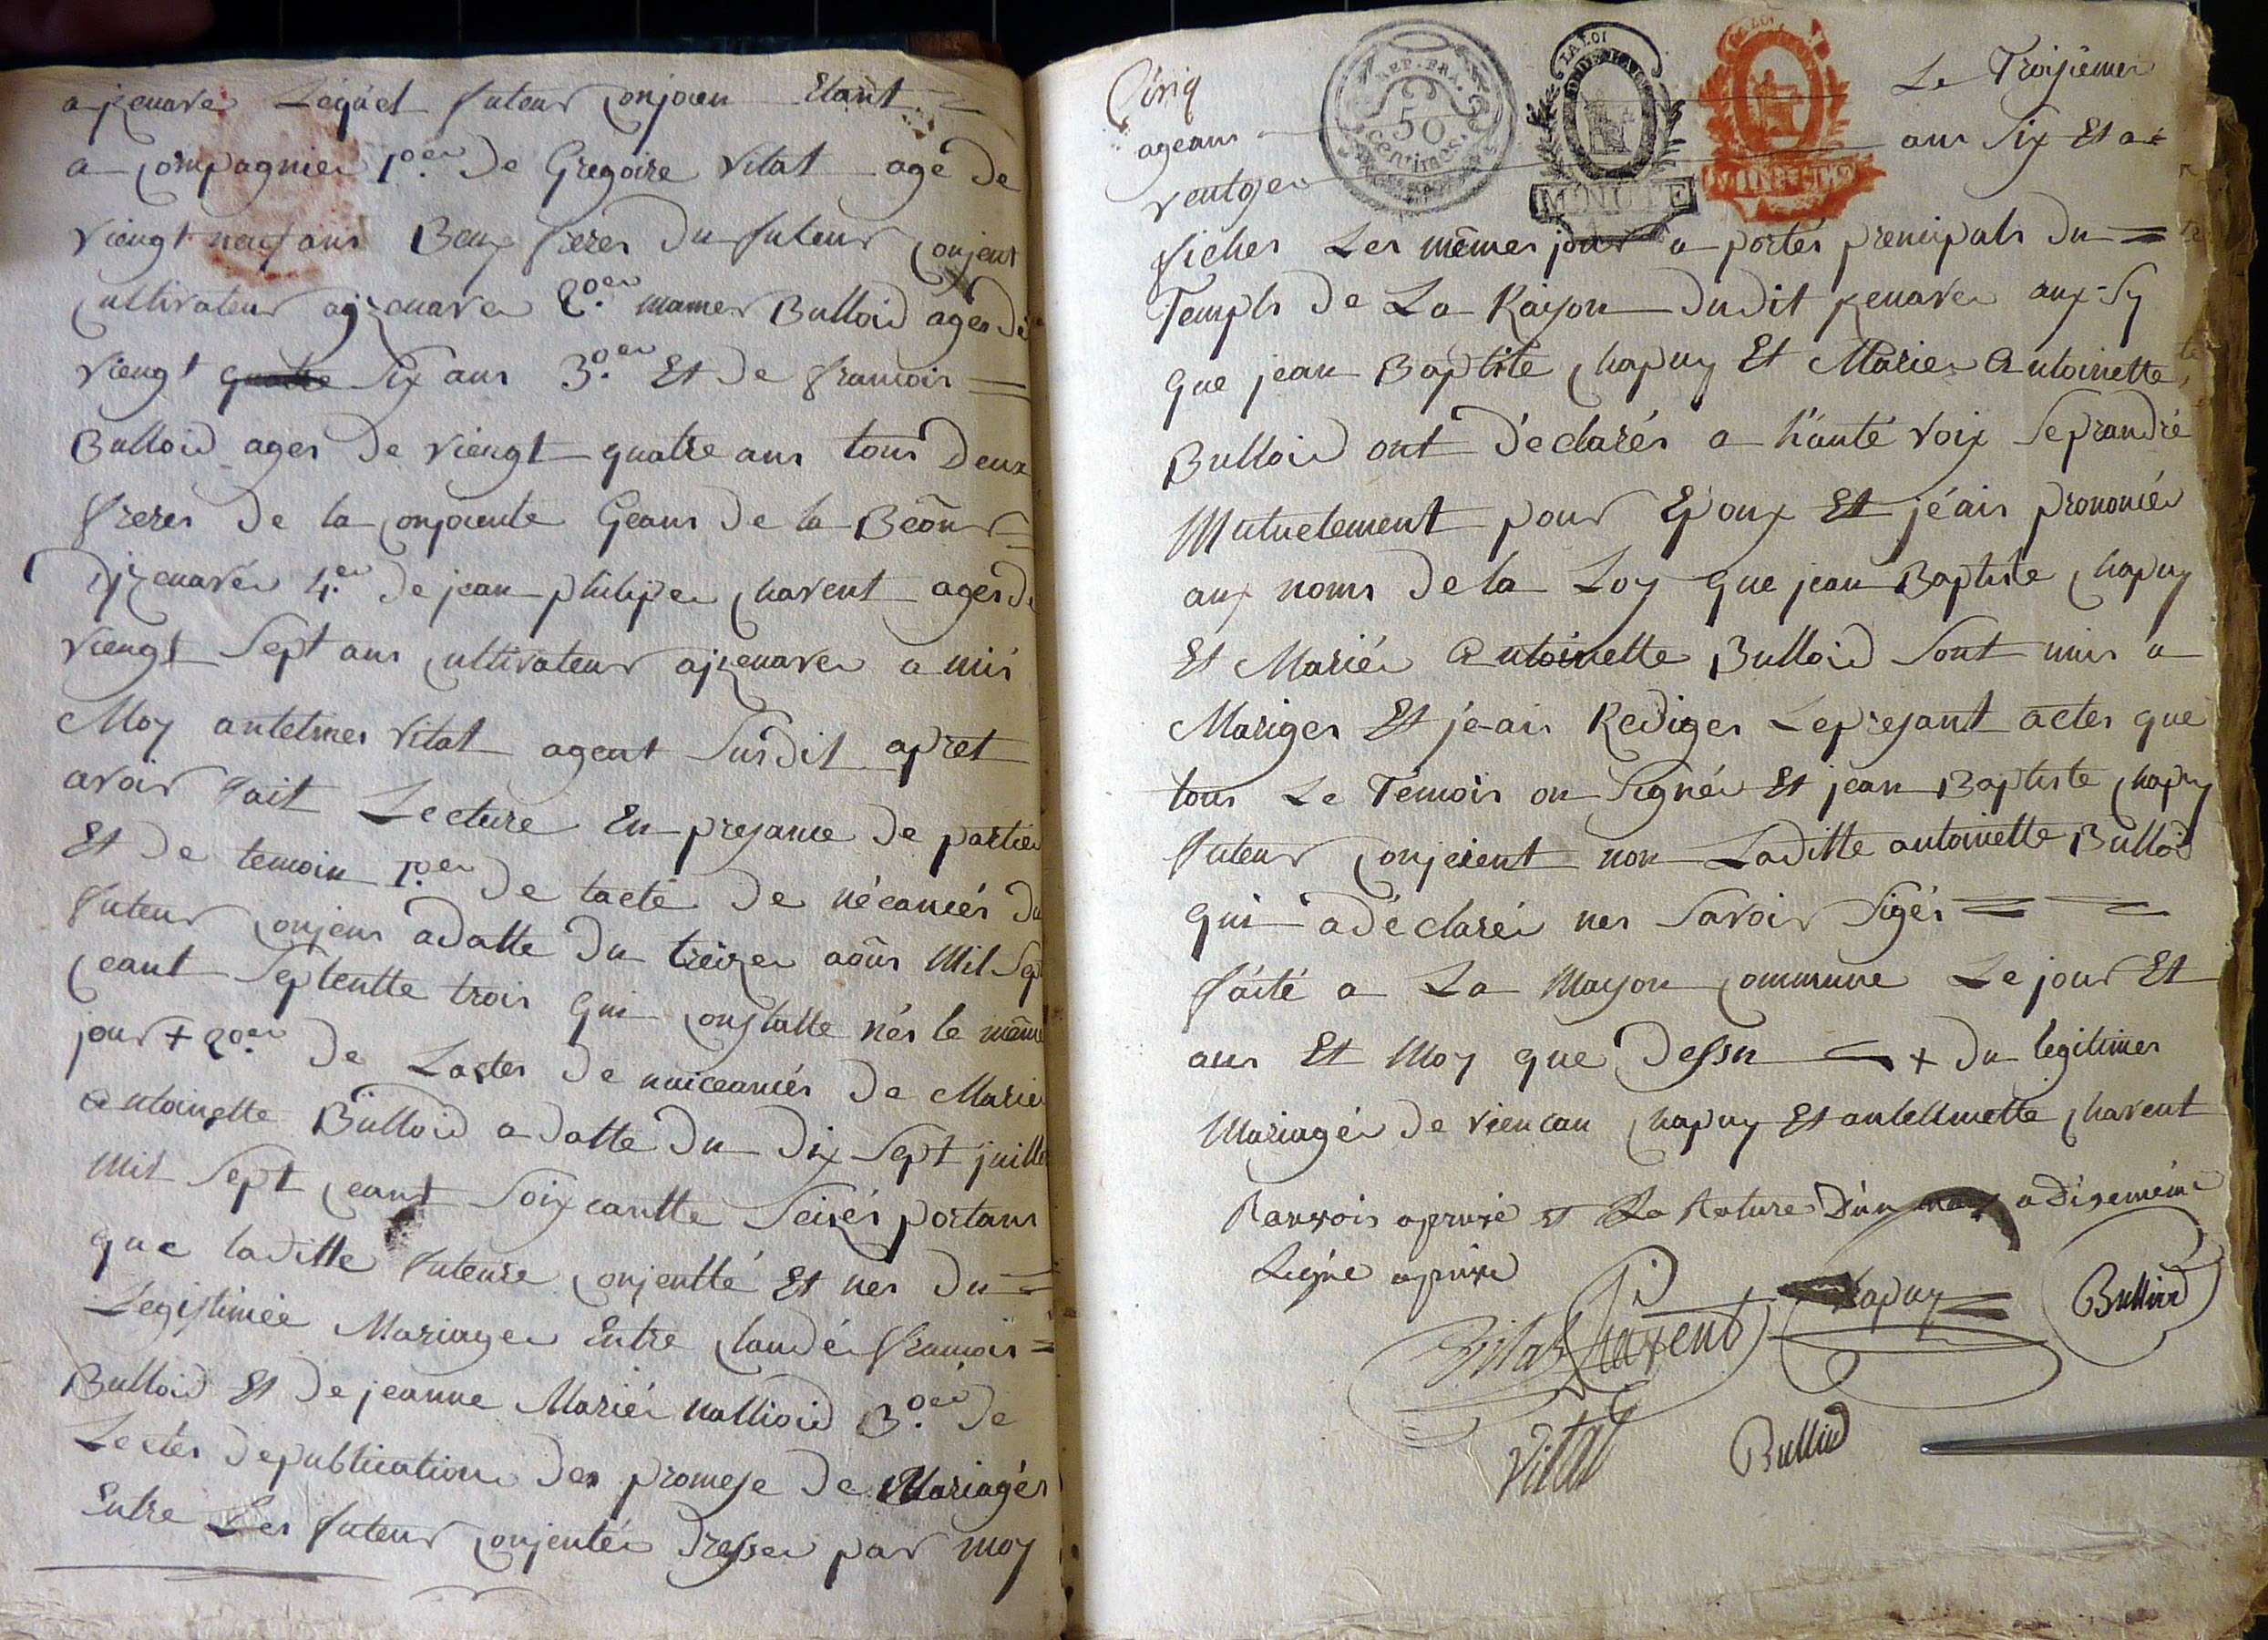 a jzenave Lequel futeur Conjoen Etant =
a Compagnier 1.oer De Gregoire Vitat agé De
viengt neuf ans Beux freres Du futeur Conjent
Cultivateur ajzenave 2.oer mamer Bulloid ages De
viengt quatre Six ans 3.oer Et De francois =
Bulloid ages De viengt quatre ans tous Deux
freres De la Conjoente Geans De la
Djzenavés 4.er De jean philipe Chavent ages De
viengt Sept ans Cultivateur ajzenave a mis
Moy antelmes Vitat agent Surdit apret
avoir fait Lecture En presance De partie
Et De temoin 1.oer De lacte De nécancés Du
futeur Conjens adatte Du treizer aoûs Mil Sept
Ceant Septentte trois qui Constatte nés le même
jour + 2.oer De Lactes De naiceancés De Marie
antoinette Bulloid a Datte Du Dix Sept juillet
Mil Sept Ceant Soixcantte Seizés portans
que laditte futeure Conjentté Et nes Du =
Legistimée Mariage Entre Claudé francois =
Bulloid Et De jeanne Mariée nallioid 3.oer De
Lectes De publication Des promese De Mariagés
Entre Les futeur Conjentés Dresser par moy
Cinq Le Troisiemes
ageans ans Six Et a
ventose
REP. FRA.
50
Centimes.
LA LOI
MINUTE
LA LOI
MINUTE
fiches Les mêmes jour a portés prencipals Du =
Temples De La Raison Dudit jzenave aux-Sy
que jean Baptiste Chapuy Et Marie Antoinette
Bulloid ont Déclarés a hauté voix Se prandré
Mutuelement pour Epoux Et jéais prononcés
aux noms De la Loy que jean Baptiste Chapuy
Et Mariée Antoinette Bulloid Sont unis a
Mariges Et je-ais Rediges Le presant actes que
tous Le Témoins on Signés Et jean Baptiste Chapuy
futeur Conjeient non Laditte antoinette Bulloid
qui a déclarée nes Savoir Sigés = =
faité a La Mayson Commune Le jour Et
ans Et Moy que Dessu + Du legitimes
Mariagée De viencan Chapuy Et antelmette Chavent
Ranvois apruvé et La Rature D'un a Disemême
Légne apruve
Vitat Chavent Chapuy Bulliod
Vitat Bulliod